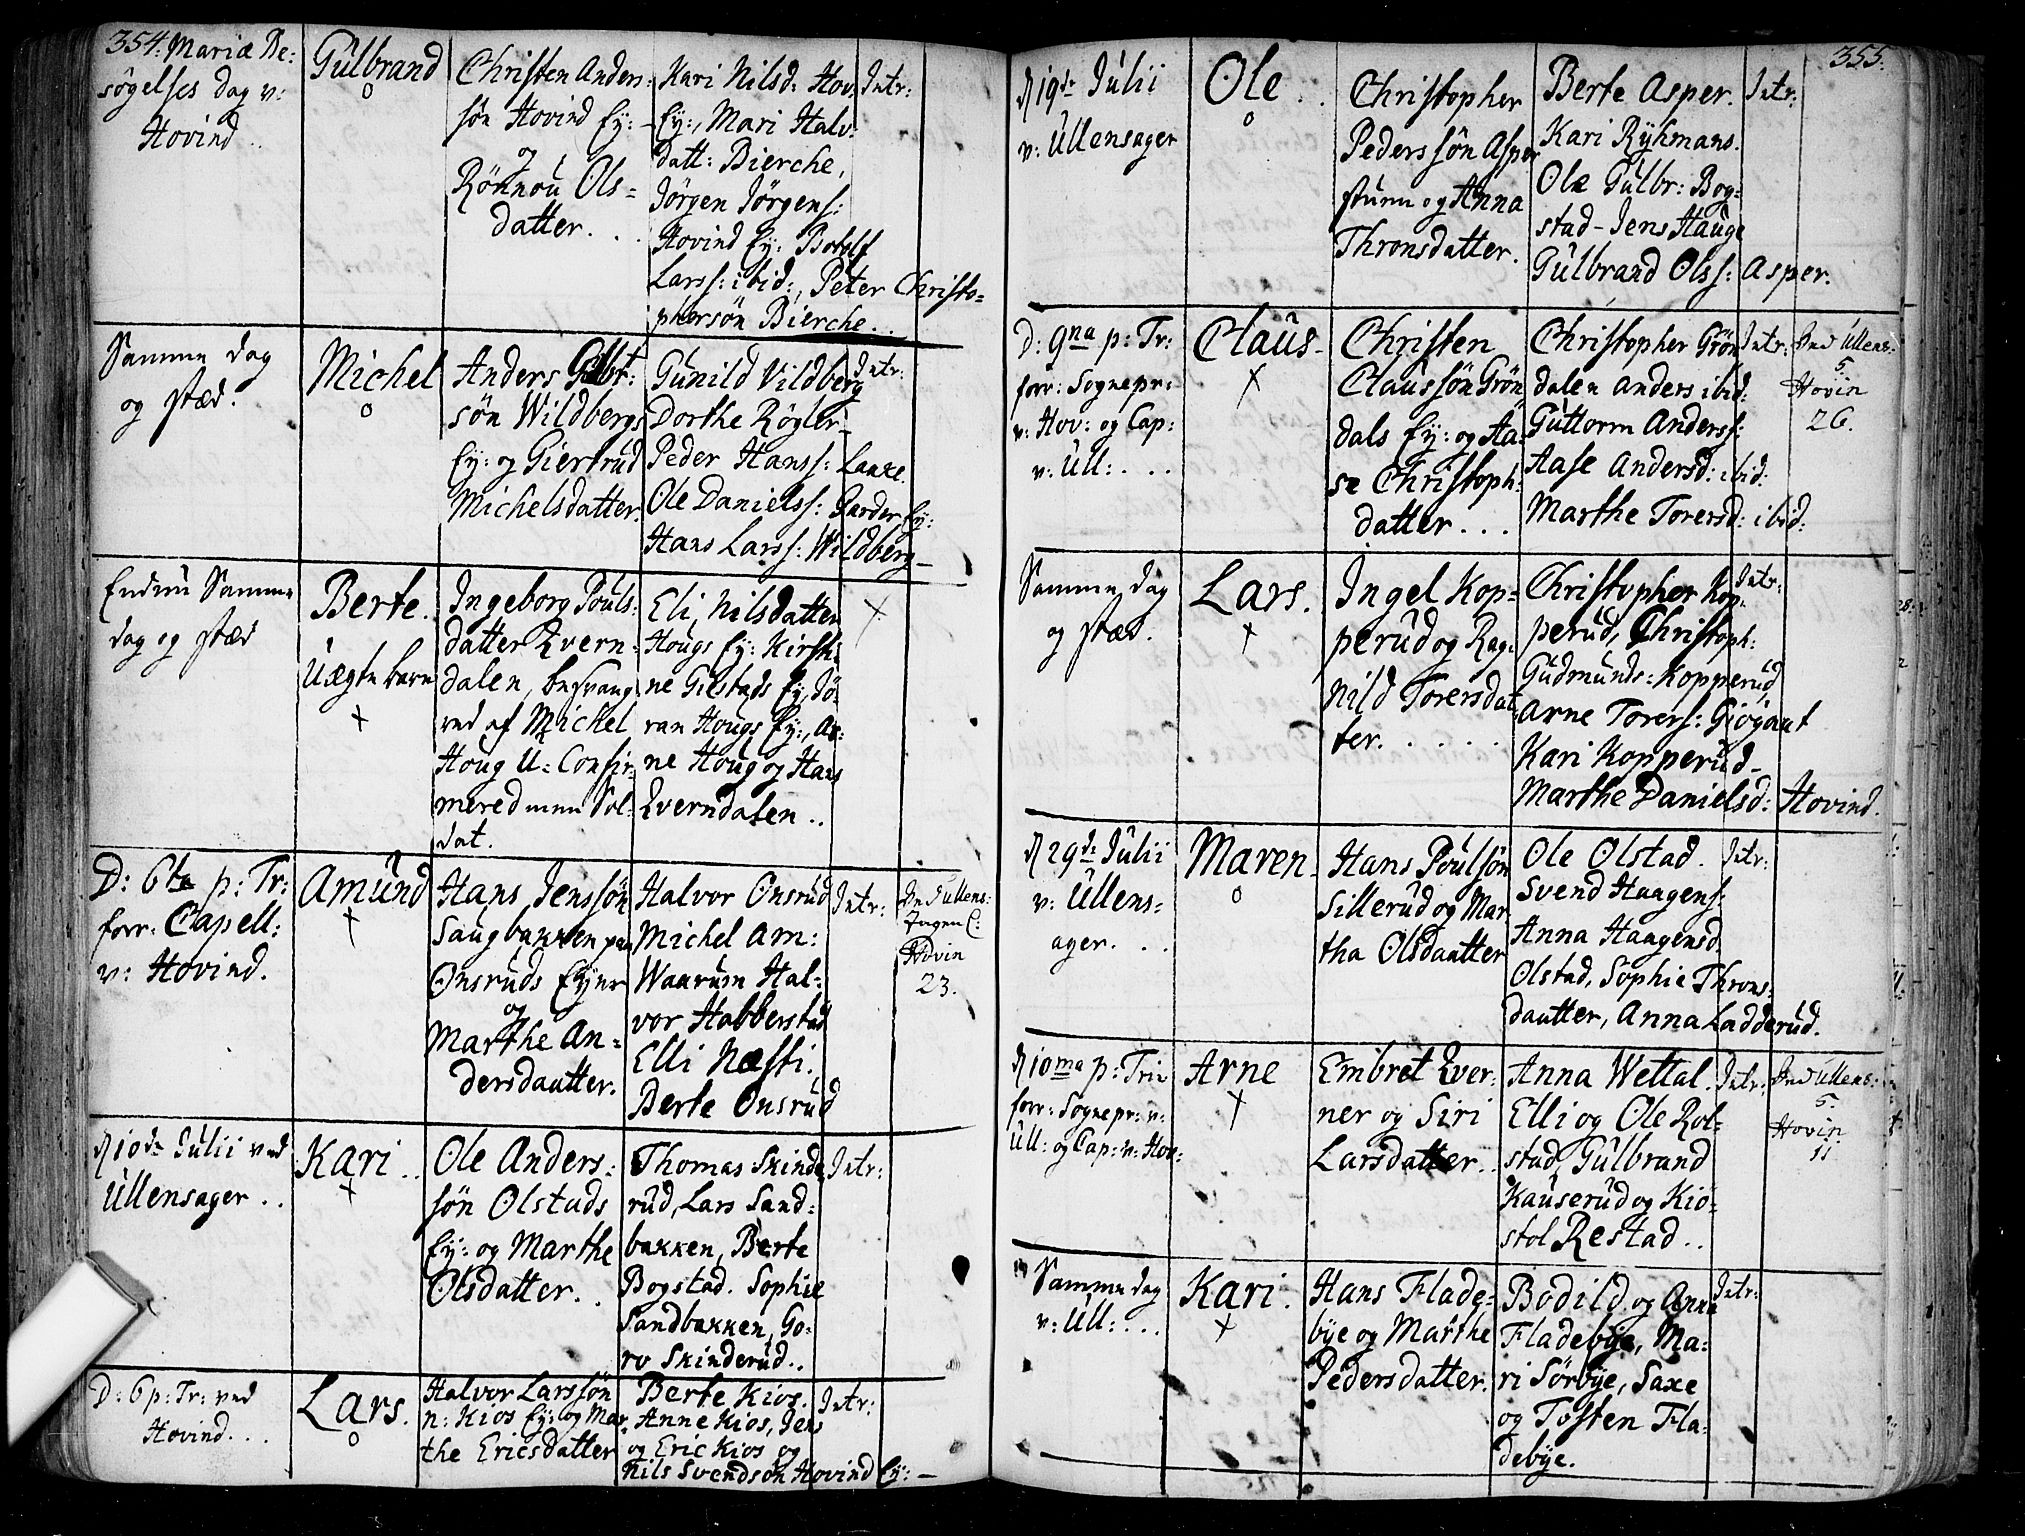 354.
Mariæ Be:
søgelses dag v:
Hovind..
Gulbrand
o
Christen Anders:
søn Hovind Ey:
og
Rönnou Ols=
datter...
Kari Nilsd: Hov.
Ey:, Mari Halv.
datt: Bierche,
Jörgen Jörgens:
Hovind Ey: Botolf
Larss: ibid:, Peter Christo=
phersön Bierche..
Intr:
Samme dag
og stæd.
Michel
o
Anders Gulbr:
søn Wildbergs
Ey: og Giertrud
Michelsdatter.
Gunild Vildberg
Dorthe Rögler
Peder Hanss: Laxe.
Ole Danielss: Garder Ey:
Hans Larss: Wildberg
Intr:
Endnu Samme
dag og stæd
Berte.
Uægte barn
+
Ingeborg Pouls-
datter Evern-
dalen, besvang-
red af Michel
Houg U: Confir-
mered men Sol-
dat.
Eli, Nilsdatter
Hougs Ey: Kirsti-
ne Giestads Ey, Jö-
ran Hougs Ey:, Ar-
ne Houg og Hans
Everndalen..
+
D: 6ta p: Tr:
forr: Capell:
v: Hovind.
Amund
+
Hans Jenssøn
Saugbakken paa
Onsruds Eyner
og
Marthe An=
dersdautter.
Halvor Onsrud
Michel Am:
Waarum Hal=
vor Habberstad
Elli Næsti.
Berte Onsrud
Intr:
Ved Ullens:
Ingen C:
Hovin
23.
d 10de Julii ved
Ullensager..
Kari..
+
Ole Anders:
søn Olstads
Ey: og Marthe
Olsdatter..
Thomas Skinde
rud, Lars Sand=
bakken, Berte
Bogstad. Sophie
Sandbakken, Go-
ro Skinderud..
Intr:
D: 6 p: Tr: ved
Hovind...
Lars.
o
Halvor Larssøn
n: Kios Ey: og Mar
the Ericsdatter
Berte Kios.
Anne Kios, Jens
og Eric Kios og
Nils Svendsøn Hovind Ey:
Intr:
355.
d 19de Julii
v: Ullensager
Ole..
o
Christopher
Pederssøn Asper
sturn og Anna
Thronsdatter.
Berte Asper.
Kari Ryhmans.
Ole Gulbr: Bog=
stad - Jens Hauge
Gulbrand Olss: Asper.
Intr:
D: 9na p: Tr:
forr: Sognepr:
v: Hov: og Cap:
v: Ull:...
Claus
+
Christen
Claussøn Grön
dals Ey: og Aa-
se Christoph:
datter...
Christopher Grön
dalen Anders ibid:
Guttorm Anderss:
Aase Andersd: ibid:
Marthe Torersd: ibid:
Intr:
Ved Ullens:
5.
Hovin
26.
Samme dag
og stæd.
Lars.
+
Ingel Kop=
perud og Rag-
nild Torersdat
ter....
Christopher Kop-
perud, Christoph:
Gudmunds: Kopperud,
Arne Torers: Giögaut
Kari Kopperud
Marthe Danielsd: Hovind.
Intr:
d 29de Julii
v: Ullens=
ager...
Maren
o
Hans Poulsøn
Sillerud og Mar
tha Olsdautter
Ole Olstad.
Svend Haagens:
Anna Haagensd
Olstad, Sophie Throns=
dautter, Anna Ladderud.
Intr:
d 10ma p: Trin
forr: Sognepr: v:
Ull: og Cap: v: Hov:
Arne
+
Embret Ever-
ner og Siri
Larsdatter..
Anna Wettal.
Elli og Ole Rol=
stad, Gulbrand
Kauserud og Kiø-
stol Restad..
Intr:
Ved Ullens:
5.
Hovin.
11
Samme dag
v: Ull:...
Kari.
+
Hans Flade-
bye og Marthe
Pedersdatter.
Bodild og Anne
Fladebye, Ma-
ri Sörbye, Saxe
og Tosten Fla-
debye.
Intr: